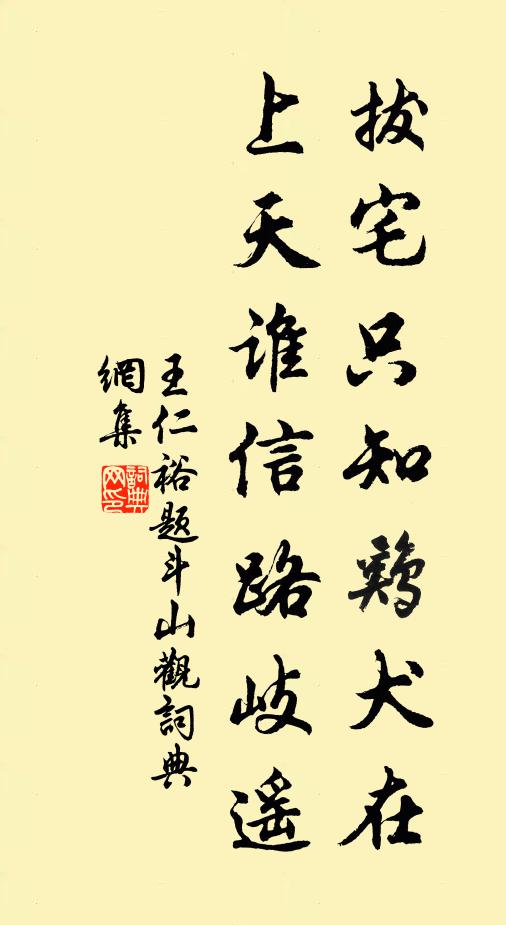 拔宅只知鷄犬在
上天谁信路歧遥
王仁裕题斗山觀詞典
網集
詞典網印